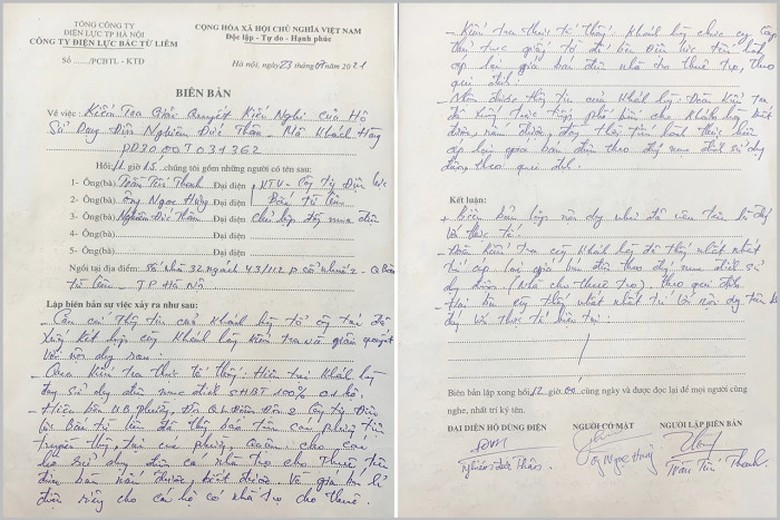 TỔNG CÔNG TY
ĐIỆN LỰC TP HÀ NỘI
CÔNG TY ĐIỆN LỰC BẮC TỪ LIÊM
Số ...../PCBTL - KTĐ
CỘNG HÒA XÃ HỘI CHỦ NGHĨA VIỆT NAM
Độc lập - Tự do - Hạnh phúc
Hà nội, ngày 23 tháng 09 năm 2021
BIÊN BẢN
Về việc: Kiểm Tra Giải Quyết Kiến Nghị Của Hộ
Sử Dụng Điện Nghiêm Đức Thân - Mã Khách Hàng
PD3000T031362
Hồi 11 giờ 15 chúng tôi gồm những người có tên sau:
1- Ông(bà) Trần Tiến Thanh Đại diện KTV - Công ty Điện lực
2- Ông(bà) Ông Ngọc Hùng Đại diện Bắc từ Liêm
3- Ông(bà) Nghiêm Đức Thân Đại diện Chủ hợp đồng mua điện
4- Ông(bà) Đại diện
5- Ông(bà) Đại diện
Ngồi tại địa điểm: Số nhà 32 ngách 43/112 p. cổ nhuế 2 - Q Bắc
từ Liêm - TP Hà Nội
Lập biên bản sự việc xảy ra như sau:
- Căn cứ thông tin của khách hàng tổ công tác đã
xuống kết hợp cùng khách hàng kiểm tra và giải quyết
với nội dung sau:
- Qua kiểm tra thực tế thấy: Hiện tại khách hàng
đang sử dụng điện mục đích SHBT 100% 01 hộ.
- Hiện bên UB phường, Đội QL Điện Đội 2 Công ty Điện
lực Bắc từ liêm đã thông báo trên các phương tiện
truyền thông tại các phường, Quận cho các
hộ sử dụng điện có nhà trọ cho thuê trên
địa bàn nắm được, biết được về giá bán lẻ
điện riêng cho các hộ có nhà trọ cho thuê.
- Kiểm tra thực tế thấy: Khách hàng chưa cung cấp
thủ tục giấy tờ để bên Điện lực tiến hành
áp lại giá bán điện nhà cho thuê trọ, theo
qui định.
- Nhận được thông tin của khách hàng: Đoàn kiểm tra
đã xuống trực tiếp phổ biến cho khách hàng biết
được, nắm được, đồng thời tiến hành thực hiện
áp lại giá bán điện theo đúng mục đích sử dụng
đúng theo qui định.
Kết luận:
+ Biên bản lập nội dung như đã nêu trên là đúng
với thực tế.
- Đoàn kiểm tra cùng khách hàng đã thống nhất nhất
trí áp lại giá bán điện theo đúng mục đích sử
dụng điện (Nhà cho thuê trọ), theo qui định
- Hai bên cùng thống nhất nhất trí với nội dung trên là
đúng với thực tế hiện tại.
Biên bản lập xong hồi 12 giờ 00 cùng ngày và được đọc lại để mọi người cùng
nghe, nhất trí ký tên.
ĐẠI DIỆN HỘ DÙNG ĐIỆN NGƯỜI CÓ MẶT NGƯỜI LẬP BIÊN BẢN
Nghiêm Đức Thân Ông Ngọc Hùng Trần Tiến Thanh